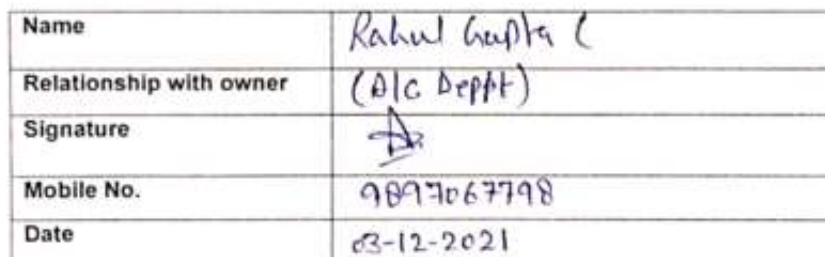 Name Rahul Gupta (
Relationship with owner (A/c Deppt)
Signature
Mobile No. 9897067798
Date 03-12-2021